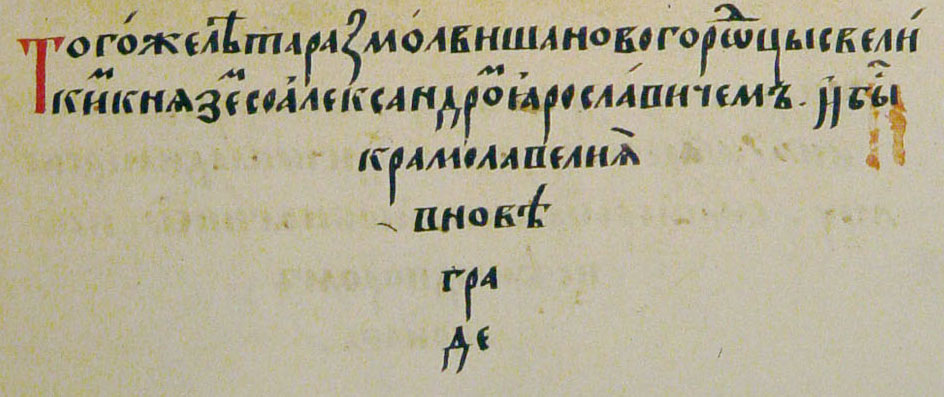 Того́желѣтаразмо́лвишановогоро́дцысвели́
ки́мкнѧземсоа́лександромꙗросла́вичемъ. И҆бы́
крамо́лавелиѧ
вновѣ
гра
де